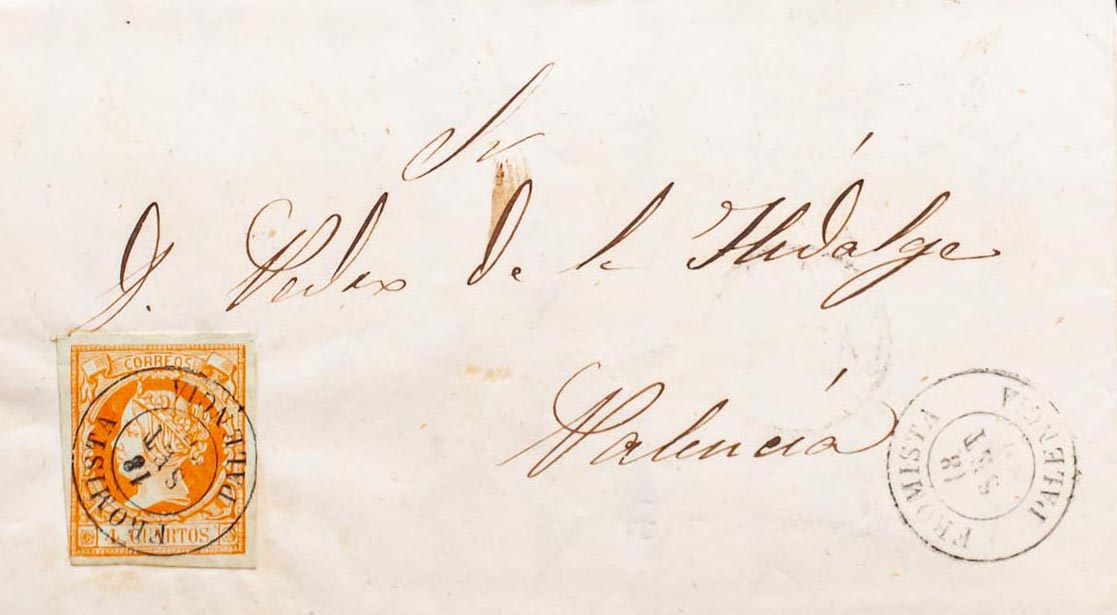 Sr
D. Vedox de la Hidalga
Valencia
CORREOS
4 CUARTOS
FROMISTA
18
SET
PALENCIA
FROMISTA
18
SET
PALENCIA